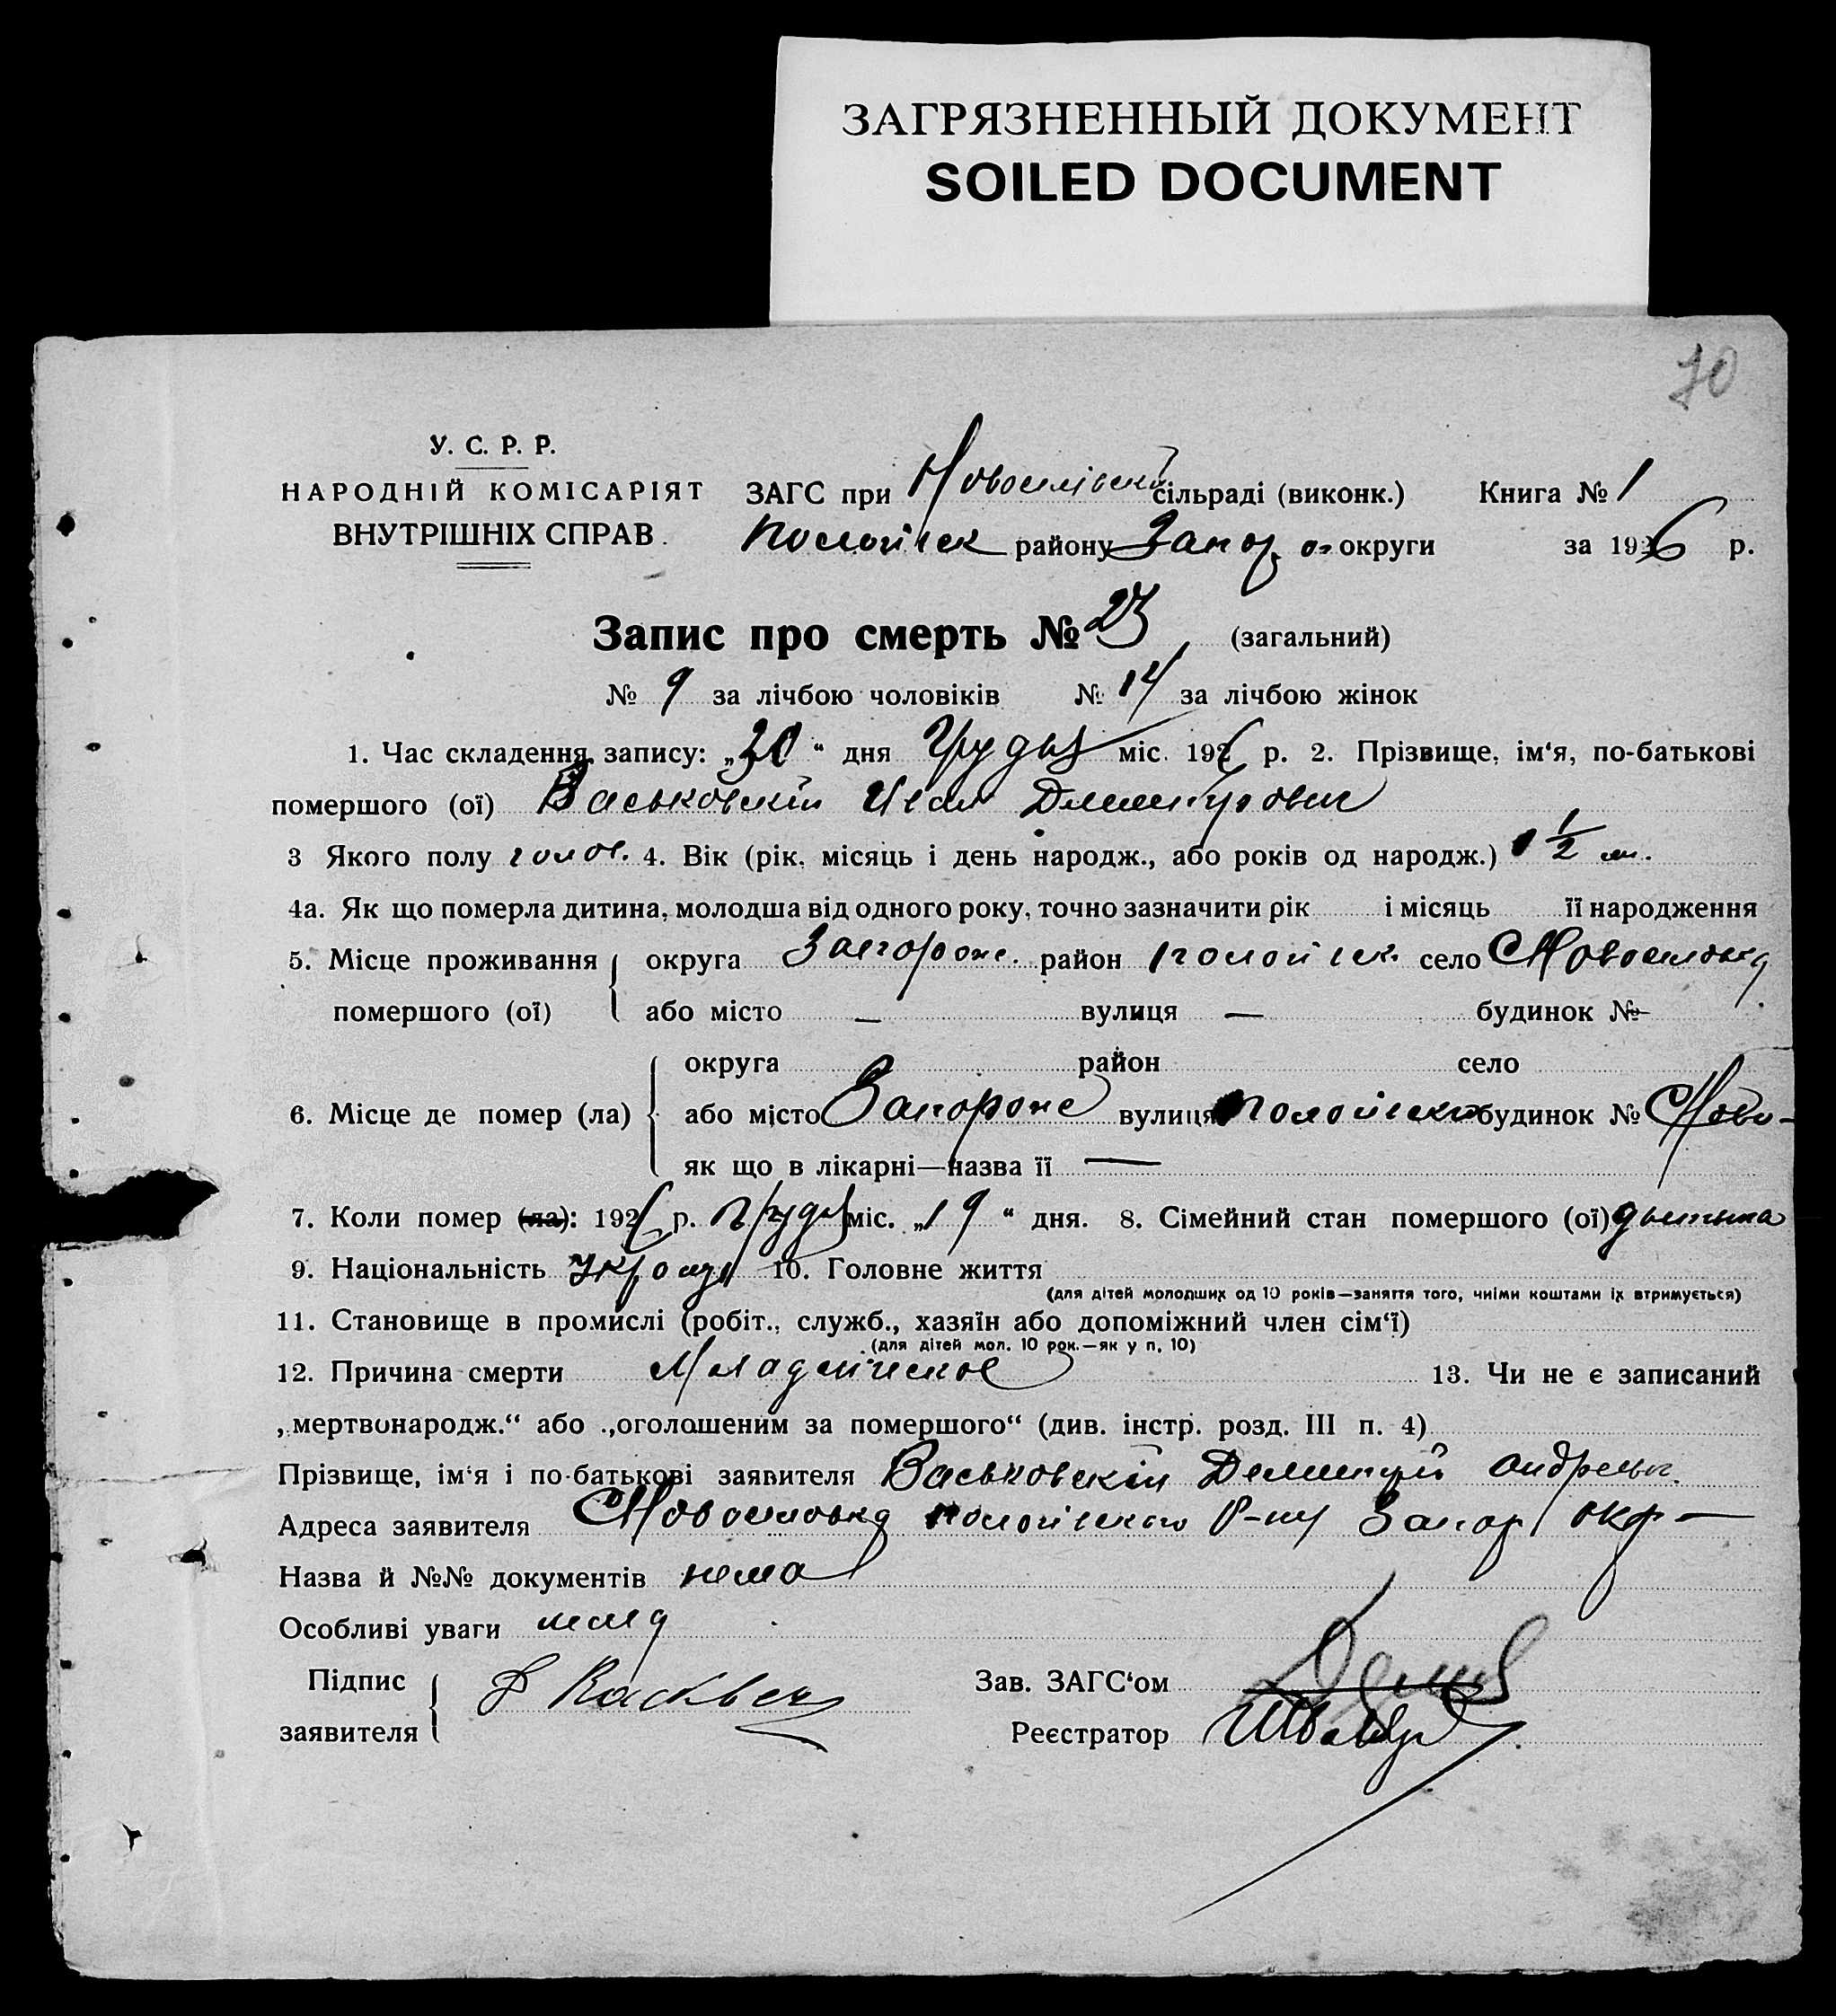 ЗАГРЯЗНЕННЫЙ ДОКУМЕНТ
SOILED DOCUMENT
70
У. С. Р. Р.
НАРОДНІЙ КОМІСАРІЯТ
ВНУТРІШНІХ СПРАВ.
ЗАГС при Новоселівский сільраді (виконк.) Книга № 1
Пологівск району Запор. округи за 1926 р.
Запис про смерть № 23 (загальний)
№ 9 за лічбою чоловіків № 14 за лічбою жінок
1. Час складення запису: „20“ дня Грудня міс. 1926 р. 2. Прізвище, ім‘я, по-батькові
помершого (ої) Васьковскій Иван Дмитрович
3 Якого полу чолов. 4. Вік (рік, місяць і день народж., або років од народж.) 1 1/2 м.
4а. Як що померла дитина, молодша від одного року, точно зазначити рік і місяць її народження
5. Місце проживання помершого (ої) округа Запороже. район Пологівск. село Новоселовка
або місто — вулиця — будинок № -
6. Місце де помер (ла) округа район село
або місто Запороже вулиця Пологівски будинок № Ново-
як що в лікарні—назва її —
7. Коли помер (ла): 1926 р. Грудня міс. „19“ дня. 8. Сімейний стан помершого (ої) дытына
9. Національність 10. Головне життя
(для дітей молодших од 10 років—заняття того, чиїми коштами їх втримується)
11. Становище в промислі (робіт., служб., хазяїн або допоміжний член сім‘ї)
(для дітей мол. 10 рок.—як у п. 10)
12. Причина смерти Младенческое 13. Чи не є записаний
„мертвонародж.“ або „оголошеним за помершого“ (див. інстр. розд. III п. 4)
Прізвище, ім‘я і по-батькові заявителя Васьковскій Дмитрий Андреев.
Адреса заявителя Новоселовка Пологівского Р-ну Запор окр —
Назва й №№ документів нема
Особливі уваги нема
Підпис заявителя
Зав. ЗАГС‘ом
Реєстратор